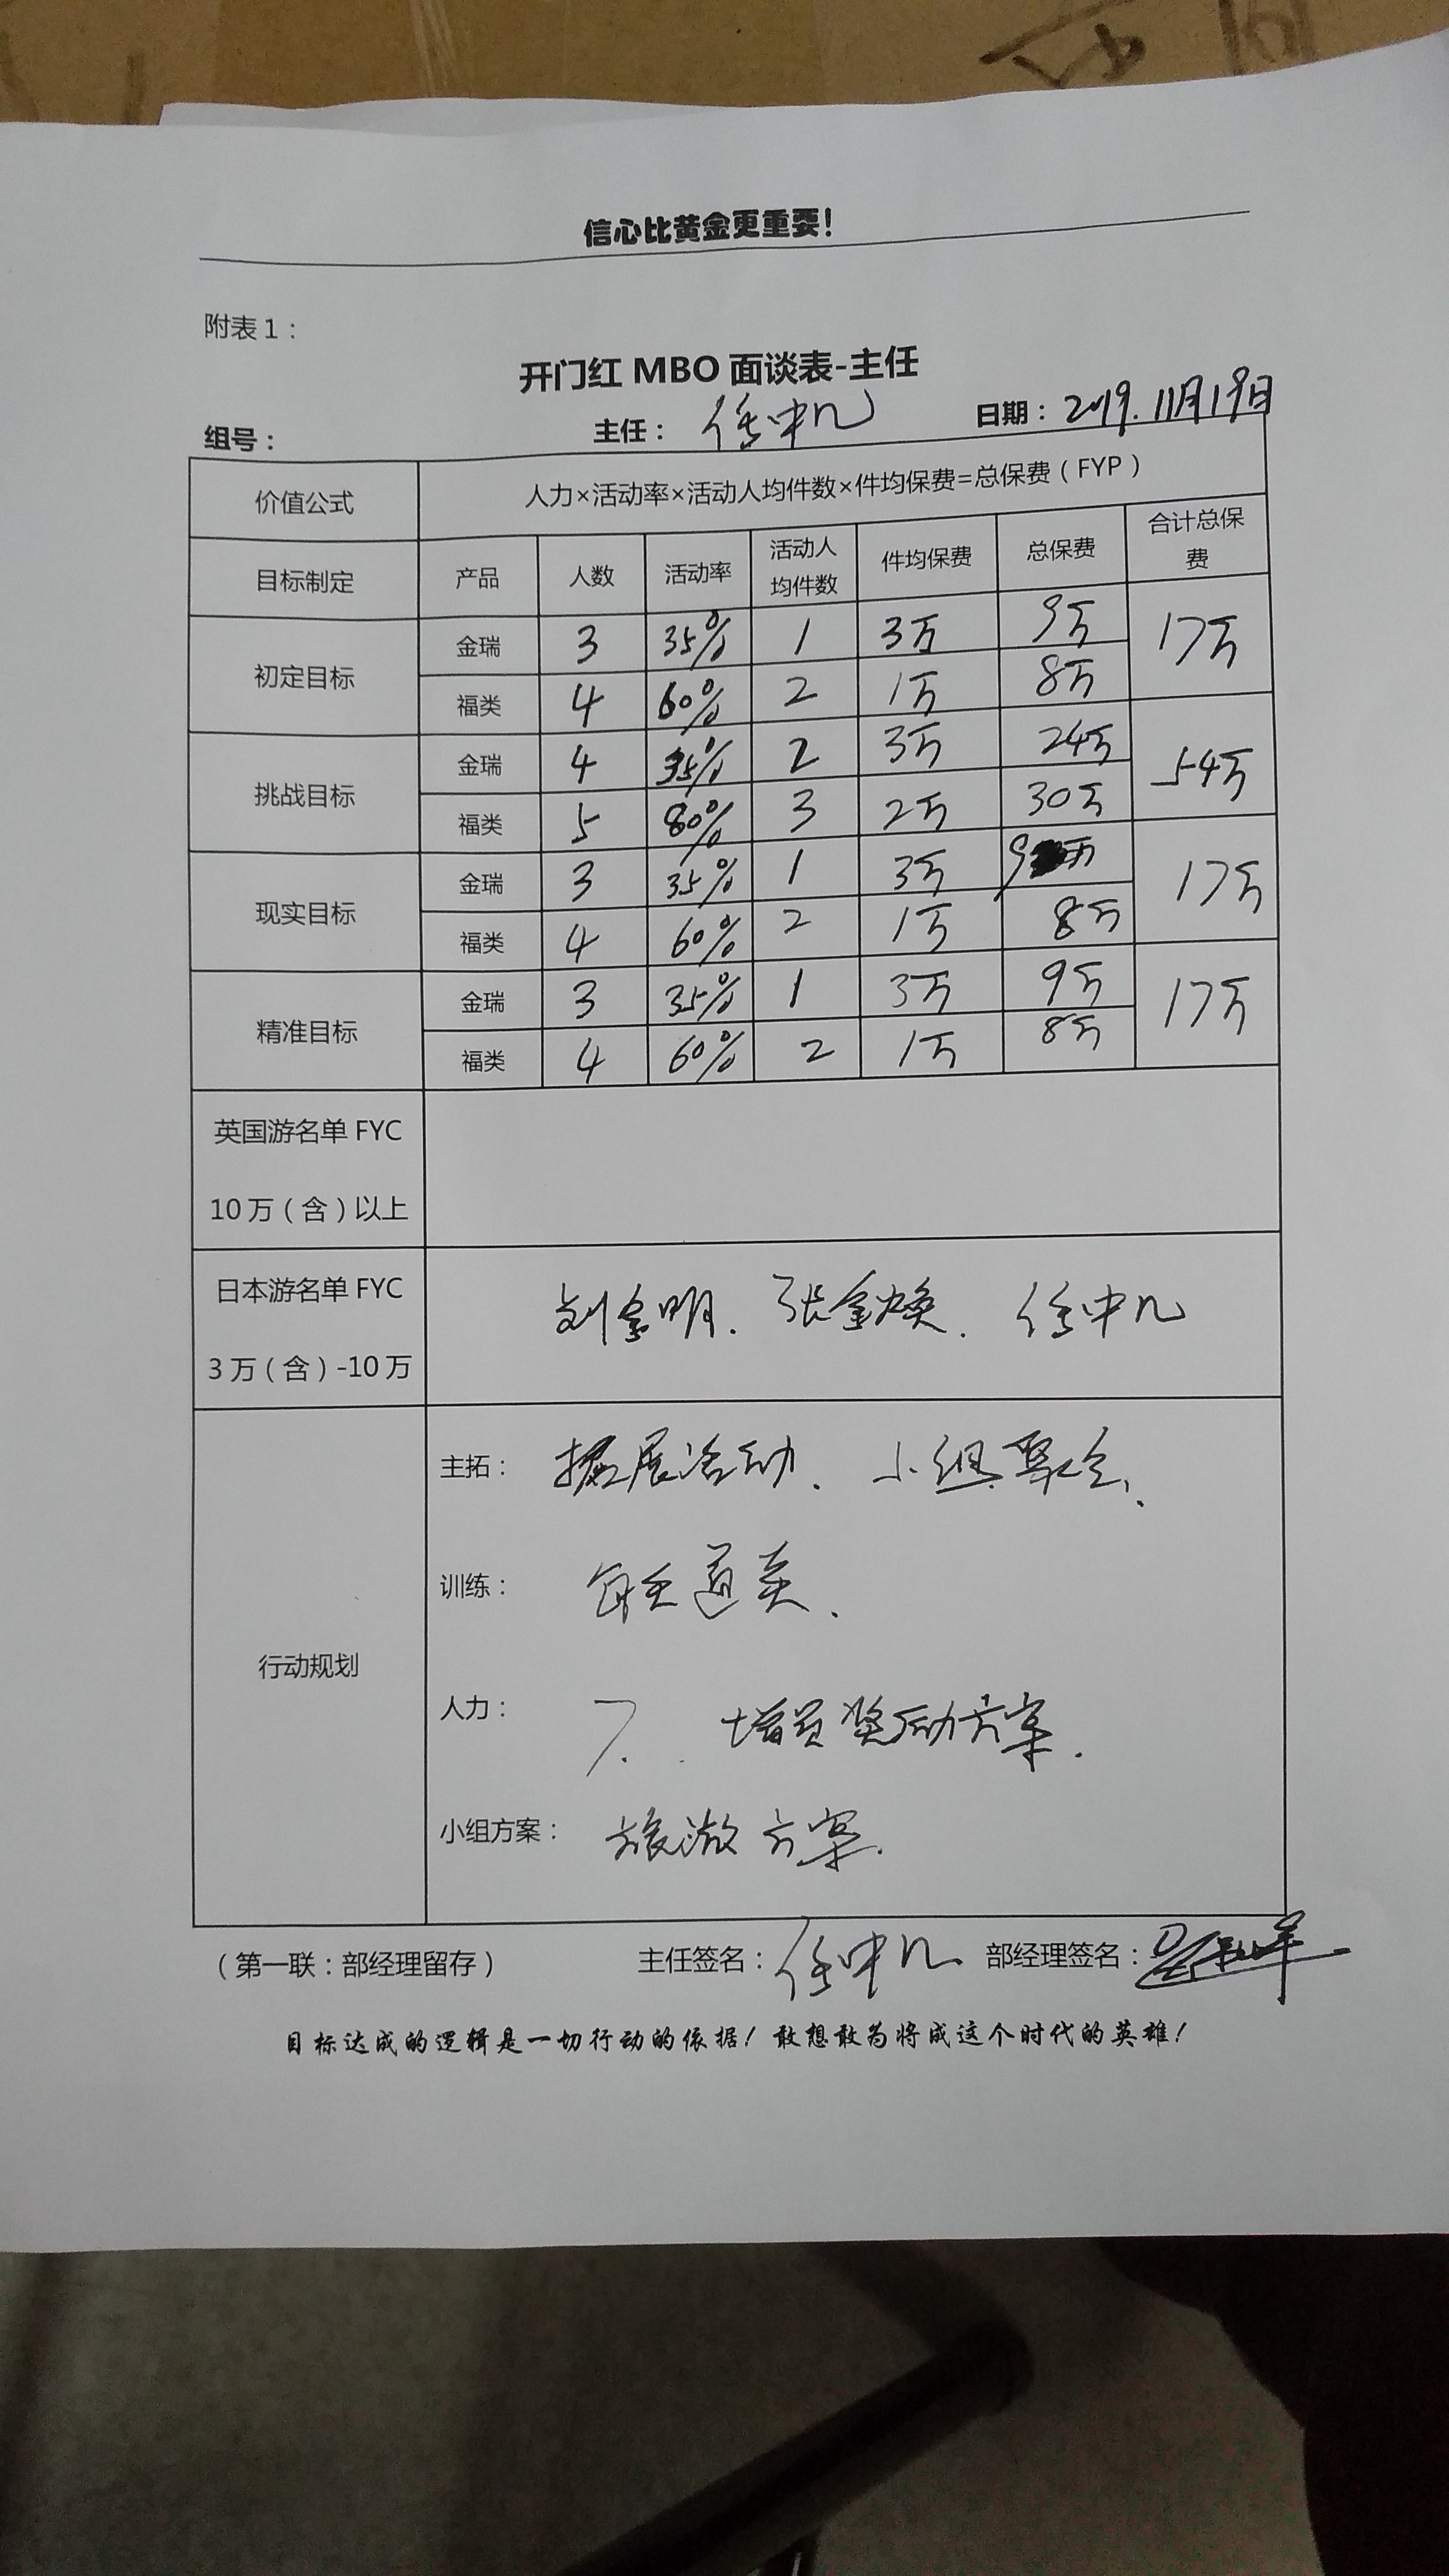 信心比黄金更重要!
附表1：
开门红 MBO 面谈表-主任
组号： 主任：任中凡 日期：2019.11月19日
价值公式 人力×活动率×活动人均件数×件均保费=总保费（FYP）
目标制定 产品 人数 活动率 活动人均件数 件均保费 总保费 合计总保费
初定目标 金瑞 3 35% 1 3万 9万 17万
福类 4 60% 2 1万 8万
挑战目标 金瑞 4 35% 2 3万 24万 54万
福类 5 80% 3 2万 30万
现实目标 金瑞 3 35% 1 3万 9万 17万
福类 4 60% 2 1万 8万
精准目标 金瑞 3 35% 1 3万 9万 17万
福类 4 60% 2 1万 8万
英国游名单 FYC
10万（含）以上
日本游名单 FYC
3万（含）-10万
刘金明、张金焕、任中凡
行动规划
主拓：拓展活动、小组聚会、
训练：每天通关、
人力：7、增员奖励方案、
小组方案：旅游方案.
（第一联：部经理留存） 主任签名：任中凡 部经理签名：
目标达成的逻辑是一切行动的依据！敢想敢为将成这个时代的英雄！